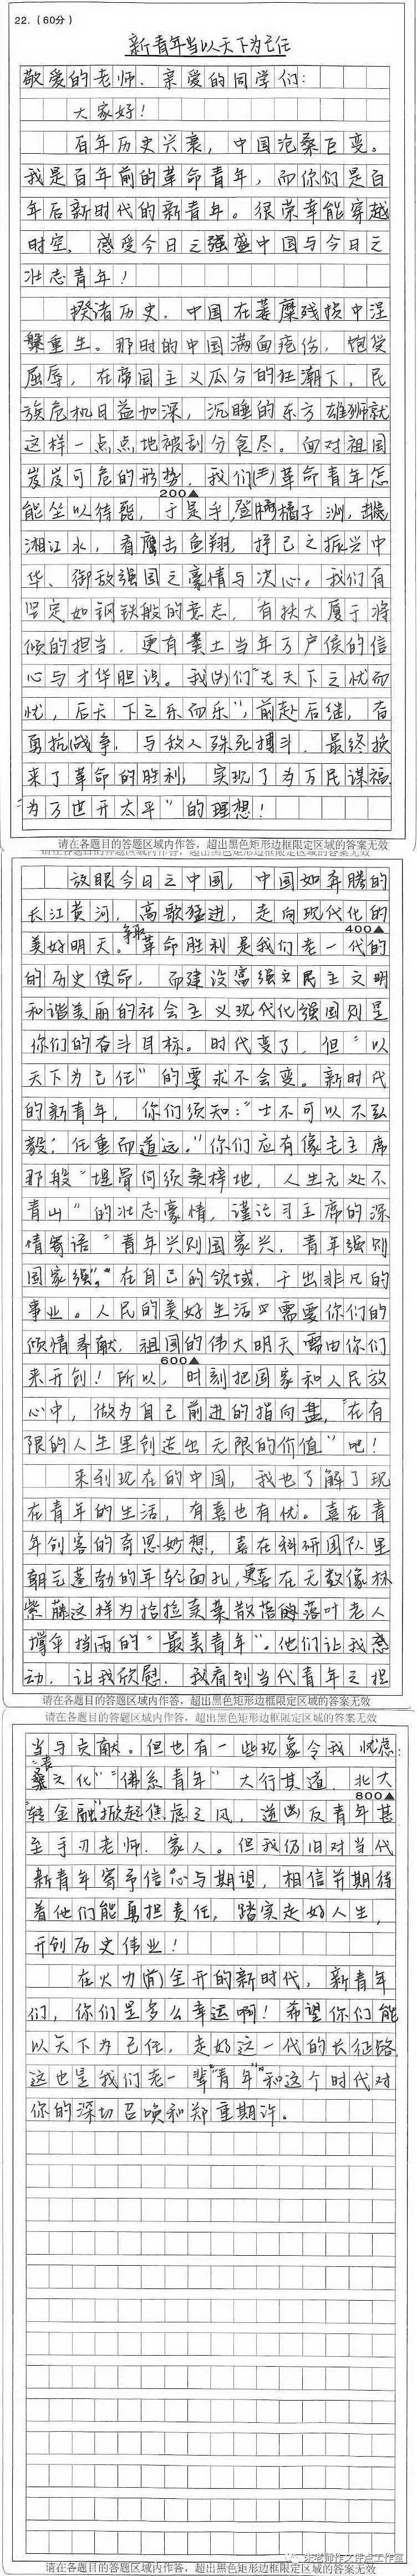 22.（60分）
新青年当以天下为己任
敬爱的老师、亲爱的同学们：
大家好！
百年历史兴衰，中国沧桑巨变。
我是百年前的革命青年，而你们是百
年后新时代的新青年。很荣幸能穿越
时空，感受今日之强盛中国与今日之
壮志青年！
揆诸历史，中国在萎靡残损中涅
槃重生。那时的中国满面疮伤，饱受
屈辱，在帝国主义瓜分的狂潮下，民
族危机日益加深，沉睡的东方雄狮就
这样一点点地被刮分食尽。面对祖国
岌岌可危的形势，我们革命青年怎
200▲
能坐以待毙，于是乎，登橘子洲，
湘江水，看鹰击鱼翔，抒己之振兴中
华、御敌强国之豪情与决心。我们有
坚定如钢铁般的意志，有扶大厦于将
倾的担当，更有粪土当年万户侯的信
心与才华胆识。我们“先天下之忧而
忧，后天下之乐而乐”，前赴后继，奋
勇抗战争，与敌人殊死搏斗，最终换
来了革命的胜利，实现了为万民谋福
“为万世开太平”的理想！
请在各题目的答题区域内作答，超出黑色矩形边框限定区域的答案无效
请在各题目的答题区域内作答，超出黑色矩形边框限定区域的答案无效
放眼今日之中国，中国如奔腾的
长江黄河，高歌猛进，走向现代化的
400▲
美好明天。争取革命胜利是我们老一代的
的历史使命，而建设富强民主文明
和谐美丽的社会主义现代化强国则是
你们的奋斗目标。时代变了，但“以
天下为己任”的要求不会变。新时代
的新青年，你们须知：“士不可以不弘
毅；任重而道远。”你们应有像毛主席
那般“埋骨何须桑梓地，人生无处不
青山”的壮志豪情，谨记习主席的深
情寄语“青年兴则国家兴，青年强则
国家强”，在自己的领域，干出非凡的
事业。人民的美好生活需要你们的
倾情奉献，祖国的伟大明天需由你们
600▲
来开创！所以，时刻把国家和人民放
心中，做为自己前进的指向盘，“在有
限的人生里创造出无限的价值”吧！
来到现在的中国，我也了解了现
在青年的生活，有喜也有忧。喜在青
年创客的奇思妙想，喜在科研团队里
朝气蓬勃的年轮面孔，更喜在无数像林
紫藤这样为捡捡卖菜散落的落叶老人
撑伞挡雨的“最美青年”。他们让我感
动，让我欣慰，我看到当代青年之担
请在各题目的答题区域内作答，超出黑色矩形边框限定区域的答案无效
请在各题目的答题区域内作答，超出黑色矩形边框限定区域的答案无效
当与贡献。但也有一些现象令我忧虑：
“丧文化”“佛系青年”大行其道，北大
800▲
“转金融”掀起焦虑之风，逆反青年甚
至手刃老师、家人。但我仍旧对当代
新青年寄予信心与期望，相信并期待
着他们能勇担责任，踏实走好人生，
开创历史伟业！
在火力全开的新时代，新青年
们，你们是多么幸运啊！希望你们能
以天下为己任，走好这一代的长征路，
这也是我们老一辈“青年”和这个时代对
你的深切召唤和郑重期许。
朱老师作文评点工作室
请在各题目的答题区域内作答，超出黑色矩形边框限定区域的答案无效